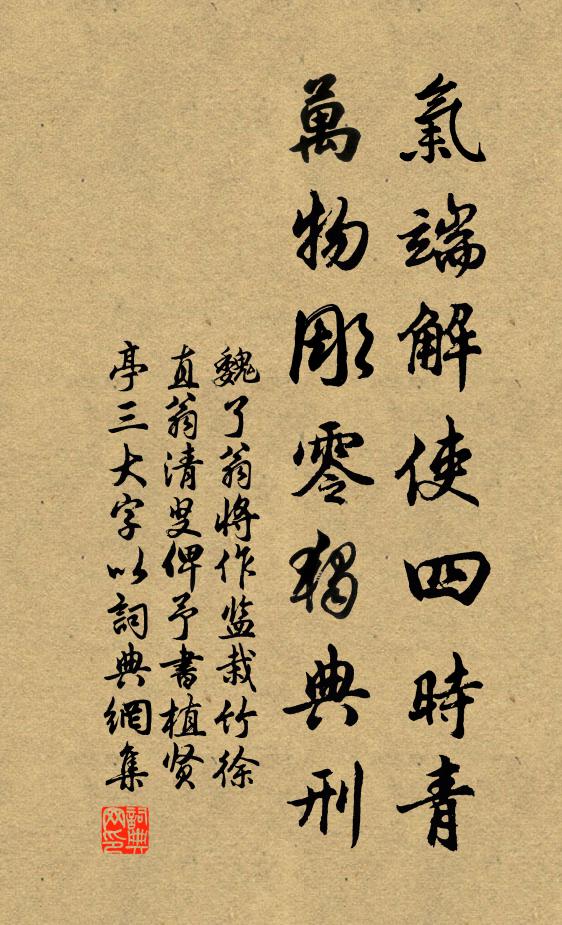 氣端解使四時青
萬物彫零獨典刑
魏了翁將作監栽竹徐
直翁清叟俾予書植贤
亭三大字以詞典網集
詞典网印